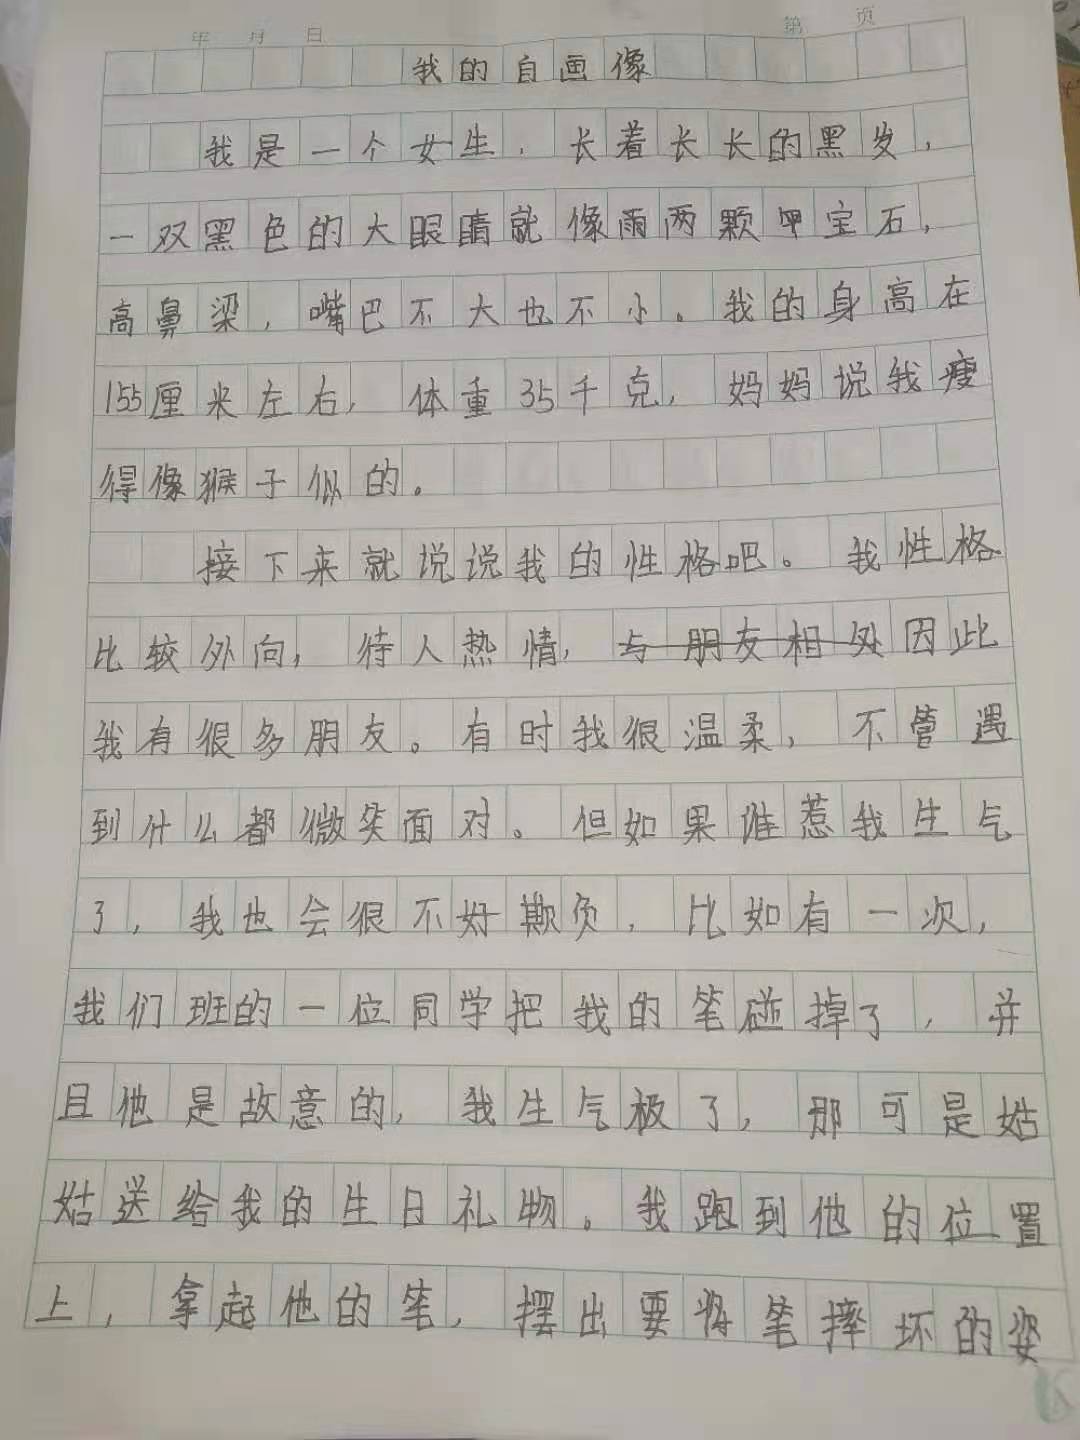 年 月 日 第 页
我的自画像
我是一个女生，长着长长的黑发，
一双黑色的大眼睛就像雨两颗甲宝石，
高鼻梁，嘴巴不大也不小。我的身高在
155厘米左右，体重35千克，妈妈说我瘦
得像猴子似的。
接下来就说说我的性格吧。我性格
比较外向，待人热情，与朋友相处因此
我有很多朋友。有时我很温柔，不管遇
到什么都微笑面对。但如果谁惹我生气
了，我也会很不好欺负，比如有一次，
我们班的一位同学把我的笔碰掉了，并
且他是故意的，我生气极了，那可是姑
姑送给我的生日礼物。我跑到他的位置
上，拿起他的笔，摆出要将笔摔坏的姿